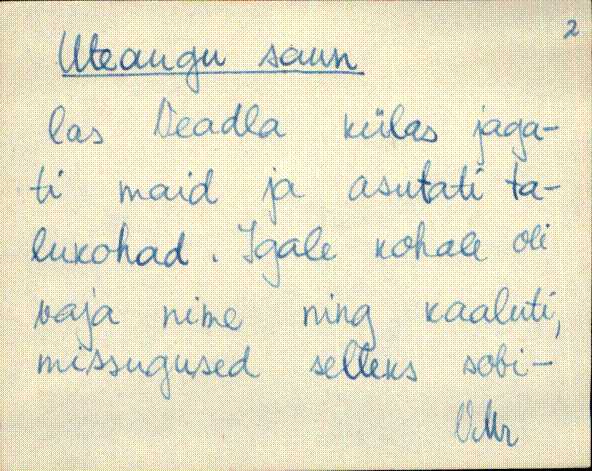 2
Uteaugu saun
las Deadla külas jaga-
ti maid ja asutati ta-
lukohad. Igale kohale oli
vaja nime ning kaaluti,
missugused selleks sobi-